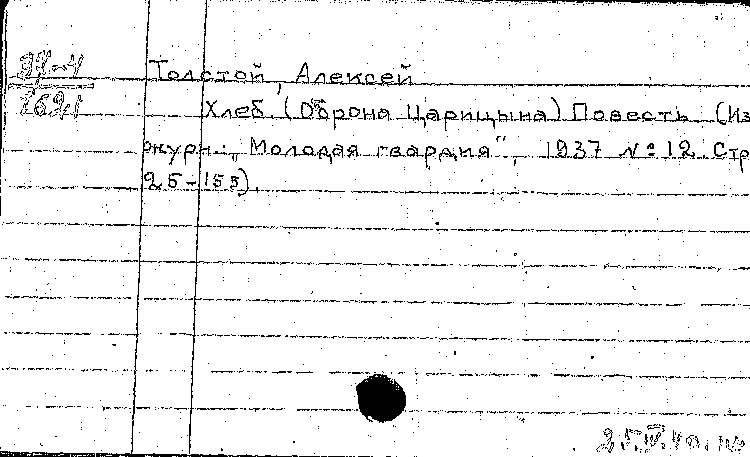 37-4
1691
Толстой, Алексей
Хлеб (Оброна Царицына) Повесть (Из
журн.: „Молодая гвардия", 1937 № 12 Стр
25-155).
25.IV.40.